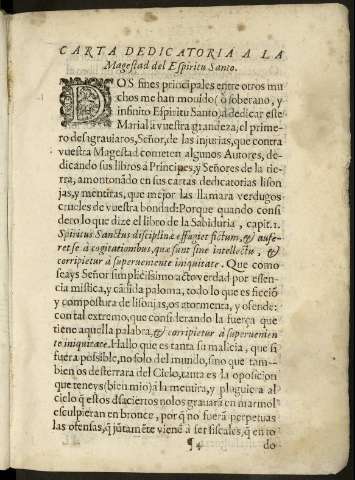 CARTA DEDICATORIA A LA
Magestad del Espiritu Santo.
DOS fines principales entre otros mu
chos me han mouido (ò soberano, y
infinito Espiritu Santo) à dedicar este
Marial à vuestra grandeza, el prime-
ro desagrauiaros, Señor, de las injurias, que contra
vuestra Magestad cometen algunos Autores, de-
dicando sus libros à Principes, y Señores de la tie-
rra, amontonãdo en sus cartas dedicatorias lison
jas, y mentiras, que mejor las llamara verdugos
crueles de vuestra bondad: Porque quando consi
dero lo que dize el libro de la Sabiduria, capit. 1.
Spiritus Sanctus disciplinæ effugiet fictum, & aufe-
ret se à cogitationibus, quæ sunt sine intellectu, &
corripietur à superueniente iniquitate. Que como
seays Señor simplicissimo acto verdad por essen-
cia mistica, y cãdida paloma, todo lo que es ficciõ
y compostura de lisonjas, os atormenta, y ofende:
con tal extremo, que considerando la fuerça que
tiene aquella palabra, & corripietur à superuenien
te iniquitate. Hallo que es tanta su malicia, que si
fuera possible, no solo del mundo, sino que tam-
bien os desterrara del Cielo, tanta es la oposicion
que teneys (bien mio) à la mentira, y pluguiera al
cielo q̃ estos dsaciertos no los grauarã en marmol
esculpieran en bronce, por q̃ no fuerã perpetuas
las ofensas, q̃ jũtamẽte vienẽ à ser fiscales, q̃ en to
¶4 do